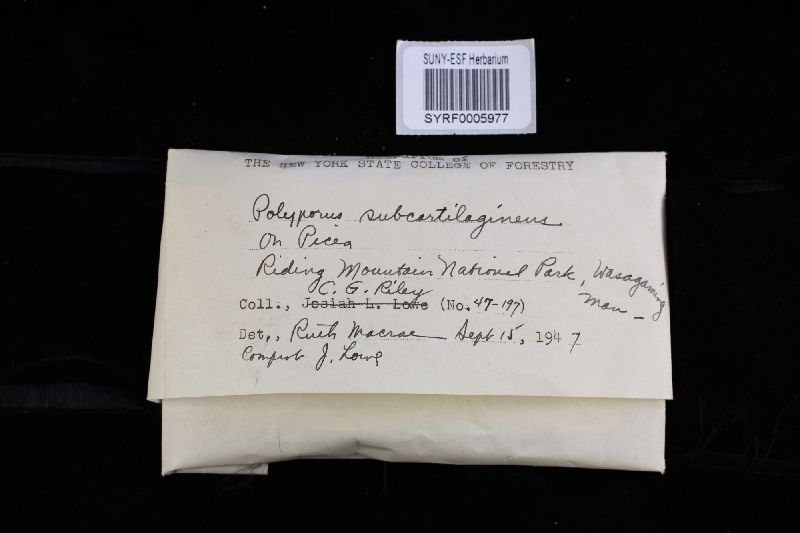 SUNY-ESF Herbarium
SYRF0005977
Herbarium of
THE NEW YORK STATE COLLEGE OF FORESTRY
Polyporus subcartilagineus
On Picea
Riding Mountain National Park, Wasagaming
Man -
C. G. Riley
Coll., Josiah L. Lowe (No. 47-197)
Det., Ruth Macrae Sept 15, 1947
J. Lowe